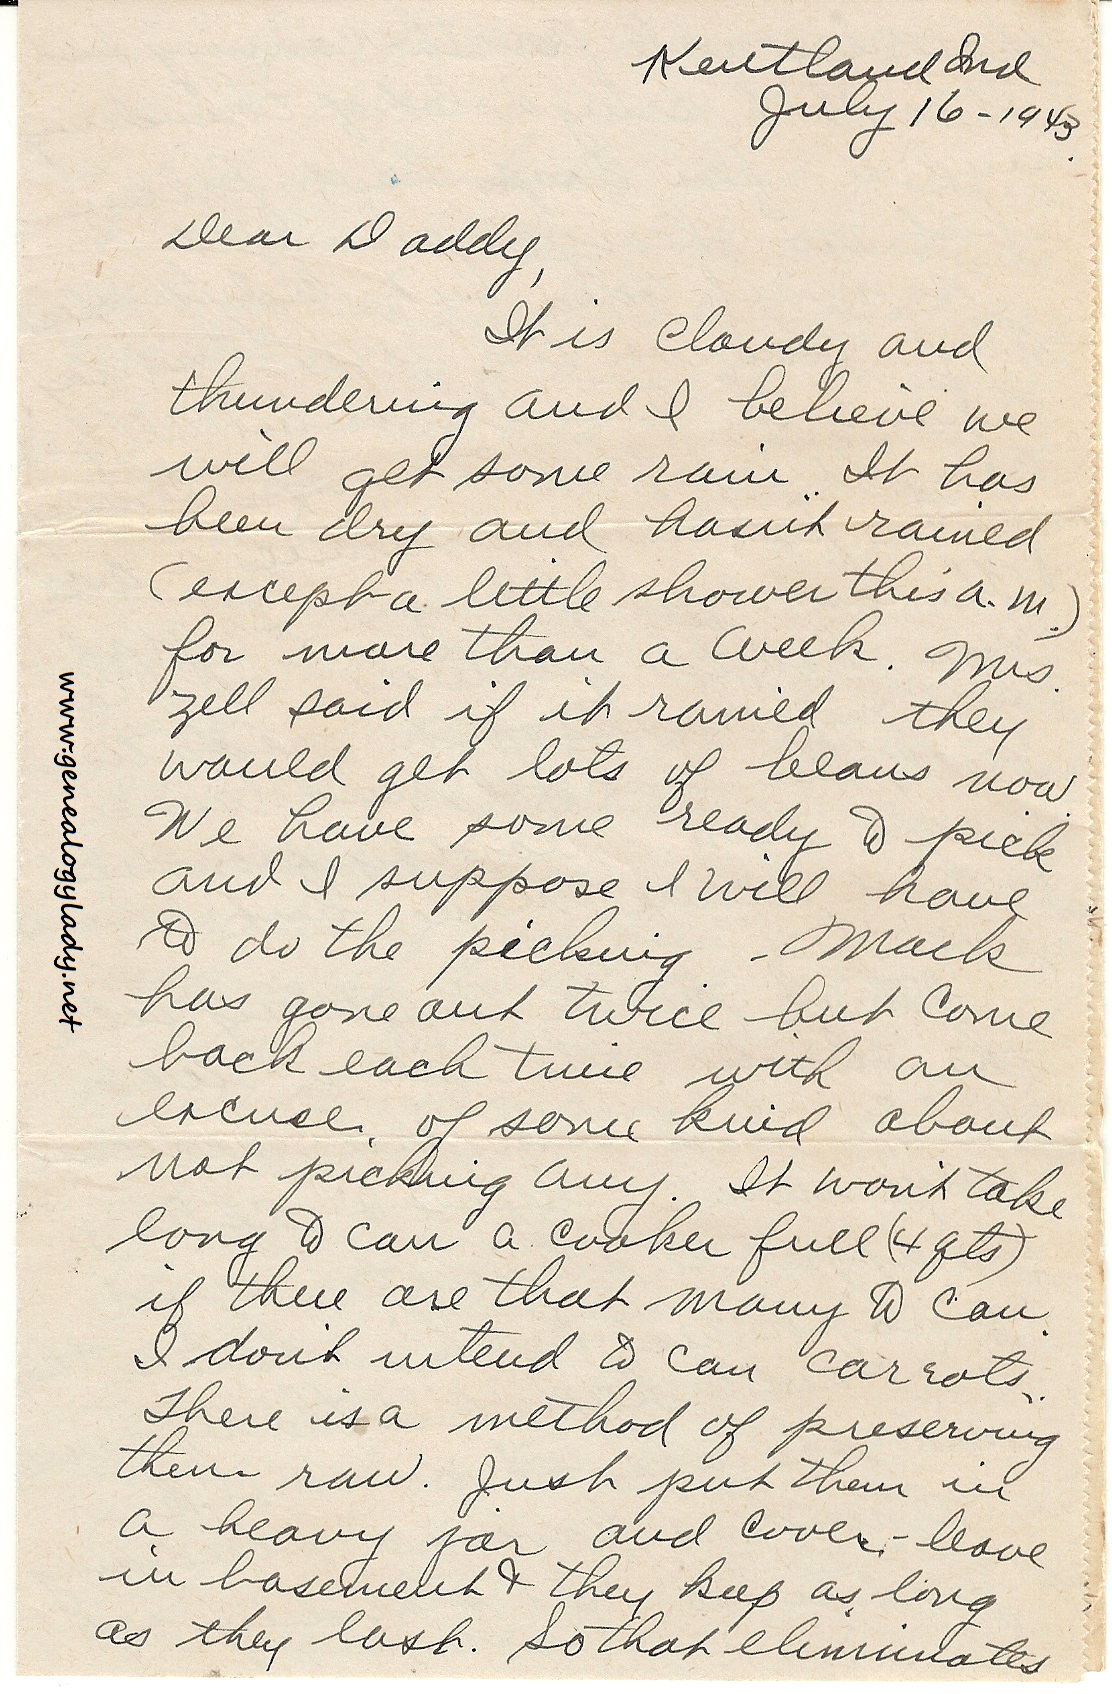 Kentland Ind
July 16-1943.
Dear Daddy,
It is cloudy and
thundering and I believe we
will get some rain. It has
been dry and hasn't rained
(except a little shower this a.m.)
for more than a week. Mrs.
Zell said if it rained they
would get lots of beans now.
We have some ready to pick
and I suppose I will have
to do the picking - Mack
has gone out twice but come
back each time with an
excuse of some kind about
not picking any. It won't take
long to can a cooker full (4 qts)
if there are that many to can.
I don't intend to can carrots.
There is a method of preserving
them raw. Just put them in
a heavy jar and cover - leave
in basement & they keep as long
as they last. So that eliminates
www.genealogylady.net